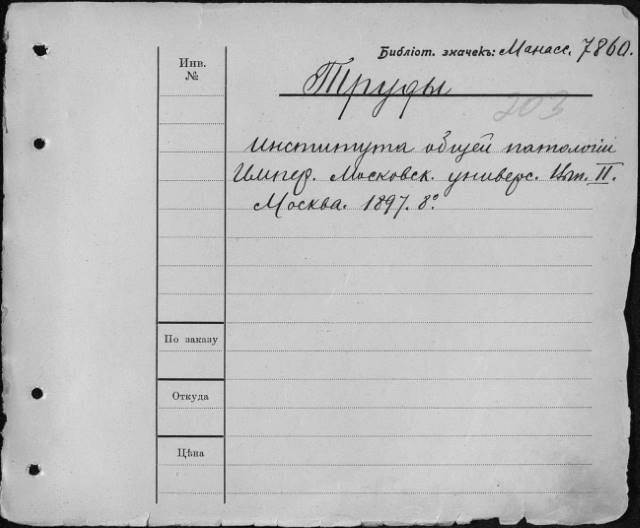 Библіот. значекъ: Манасс. 7860.
Инв.
№
Труды
203
Института общей патологіи
Импер. Московск. универс. II.
Москва. 1897. 8°
По заказу
Откуда
Цѣна